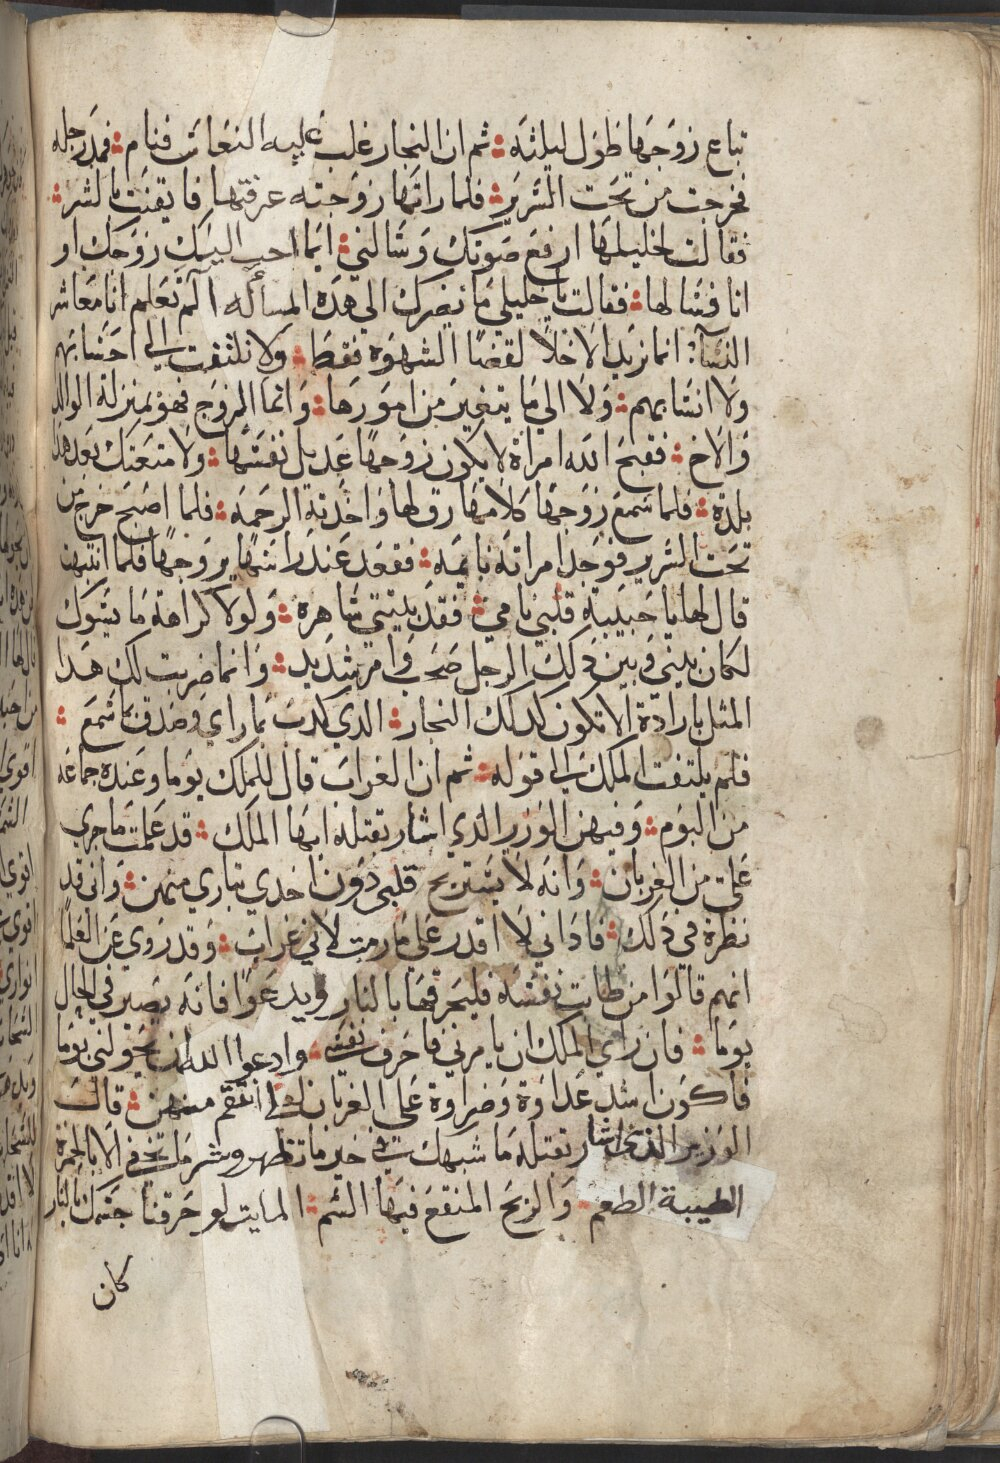 تباع زوجها طول ليلته ؞ ثم ان النجار غلب عليه النعاس فنام ؞ فمد رجله
فخرجت من تحت السرير ؞ فلما راتها زوجته عرفتها فايقنت بالشر ؞
فقالت لخليلها ارفع صوتك وسالني ؞ ايما احب اليك زوجك او
انا فسالها ؞ فقالت يا خليلي ما يضرك الي هده المسأله الم تعلم انا معاشر
النسآ ؞ انما نريد الاخلا لقضا الشهوة فقط ؞ ولا نلتفت الي احسابهم
ولا انسابهم ؞ ولا الي ما يتغير من امورها ؞ وانما الزوج فهو بمنزلة الوالد
والاخ ؞ فقبح الله امراة لا يكون زوجها عديل نفسها ؞ ولا متعتك بعد هدا
بلدة ؞ فلما سمع زوجها كلامها رق لها واخدته الرحمة ؞ فلما اصبح خرج من
تحت السرير فوجد امراته نايمة ؞ فقعد عند راسها يروحها فلما انتبهت
قال لها يا حبيبة قلبي نامي ؞ فقد بيتتي ساهرة ؞ ولولا كراهة ما يسوك
لكان بيني وبين دلك الرجل صخب وامر شديد ؞ وانما ضربت لك هدا
المثل بارادة الا تكون كدلك النجار ؞ الدي كدب بما راي وصدق بما سمع ؞
فلم يلتفت الملك الي قوله ؞ ثم ان الغراب قال للملك يوما وعنده جماعه
من البوم ؞ وفيهن الوزير الدي اشار بقتله ايها الملك ؞ قد علمت ما جري
علي من الغربان ؞ وانه لا يستريح قلبي دون اخدي بتاري منهن ؞ واني قد
نظرة في دلك ؞ فاداني لا اقدر علي ما رمت لاني غراب ؞ وقد روي عن العلما
انهم قالوا من طابت نفسه فليحرقها بالنار ويدعوا فانه يصير في الحال
بوما ؞ فان راي الملك ان يامرني فاحرق نفسي ؞ وادعوا الله ان يحولني بوما
فاكون اشد عداوة وضراوة علي الغربان لعلي انتقم منهن ؞ قال
الوزير الذي اشار بقتله ما شبهك في خير ما تظهر وشر ما تخفي الا بالخمرة
الطيبة الطعم ؞ والريح المنقع فيها السم ؞ المايت لو حرقنا جسمك بالنار
كان